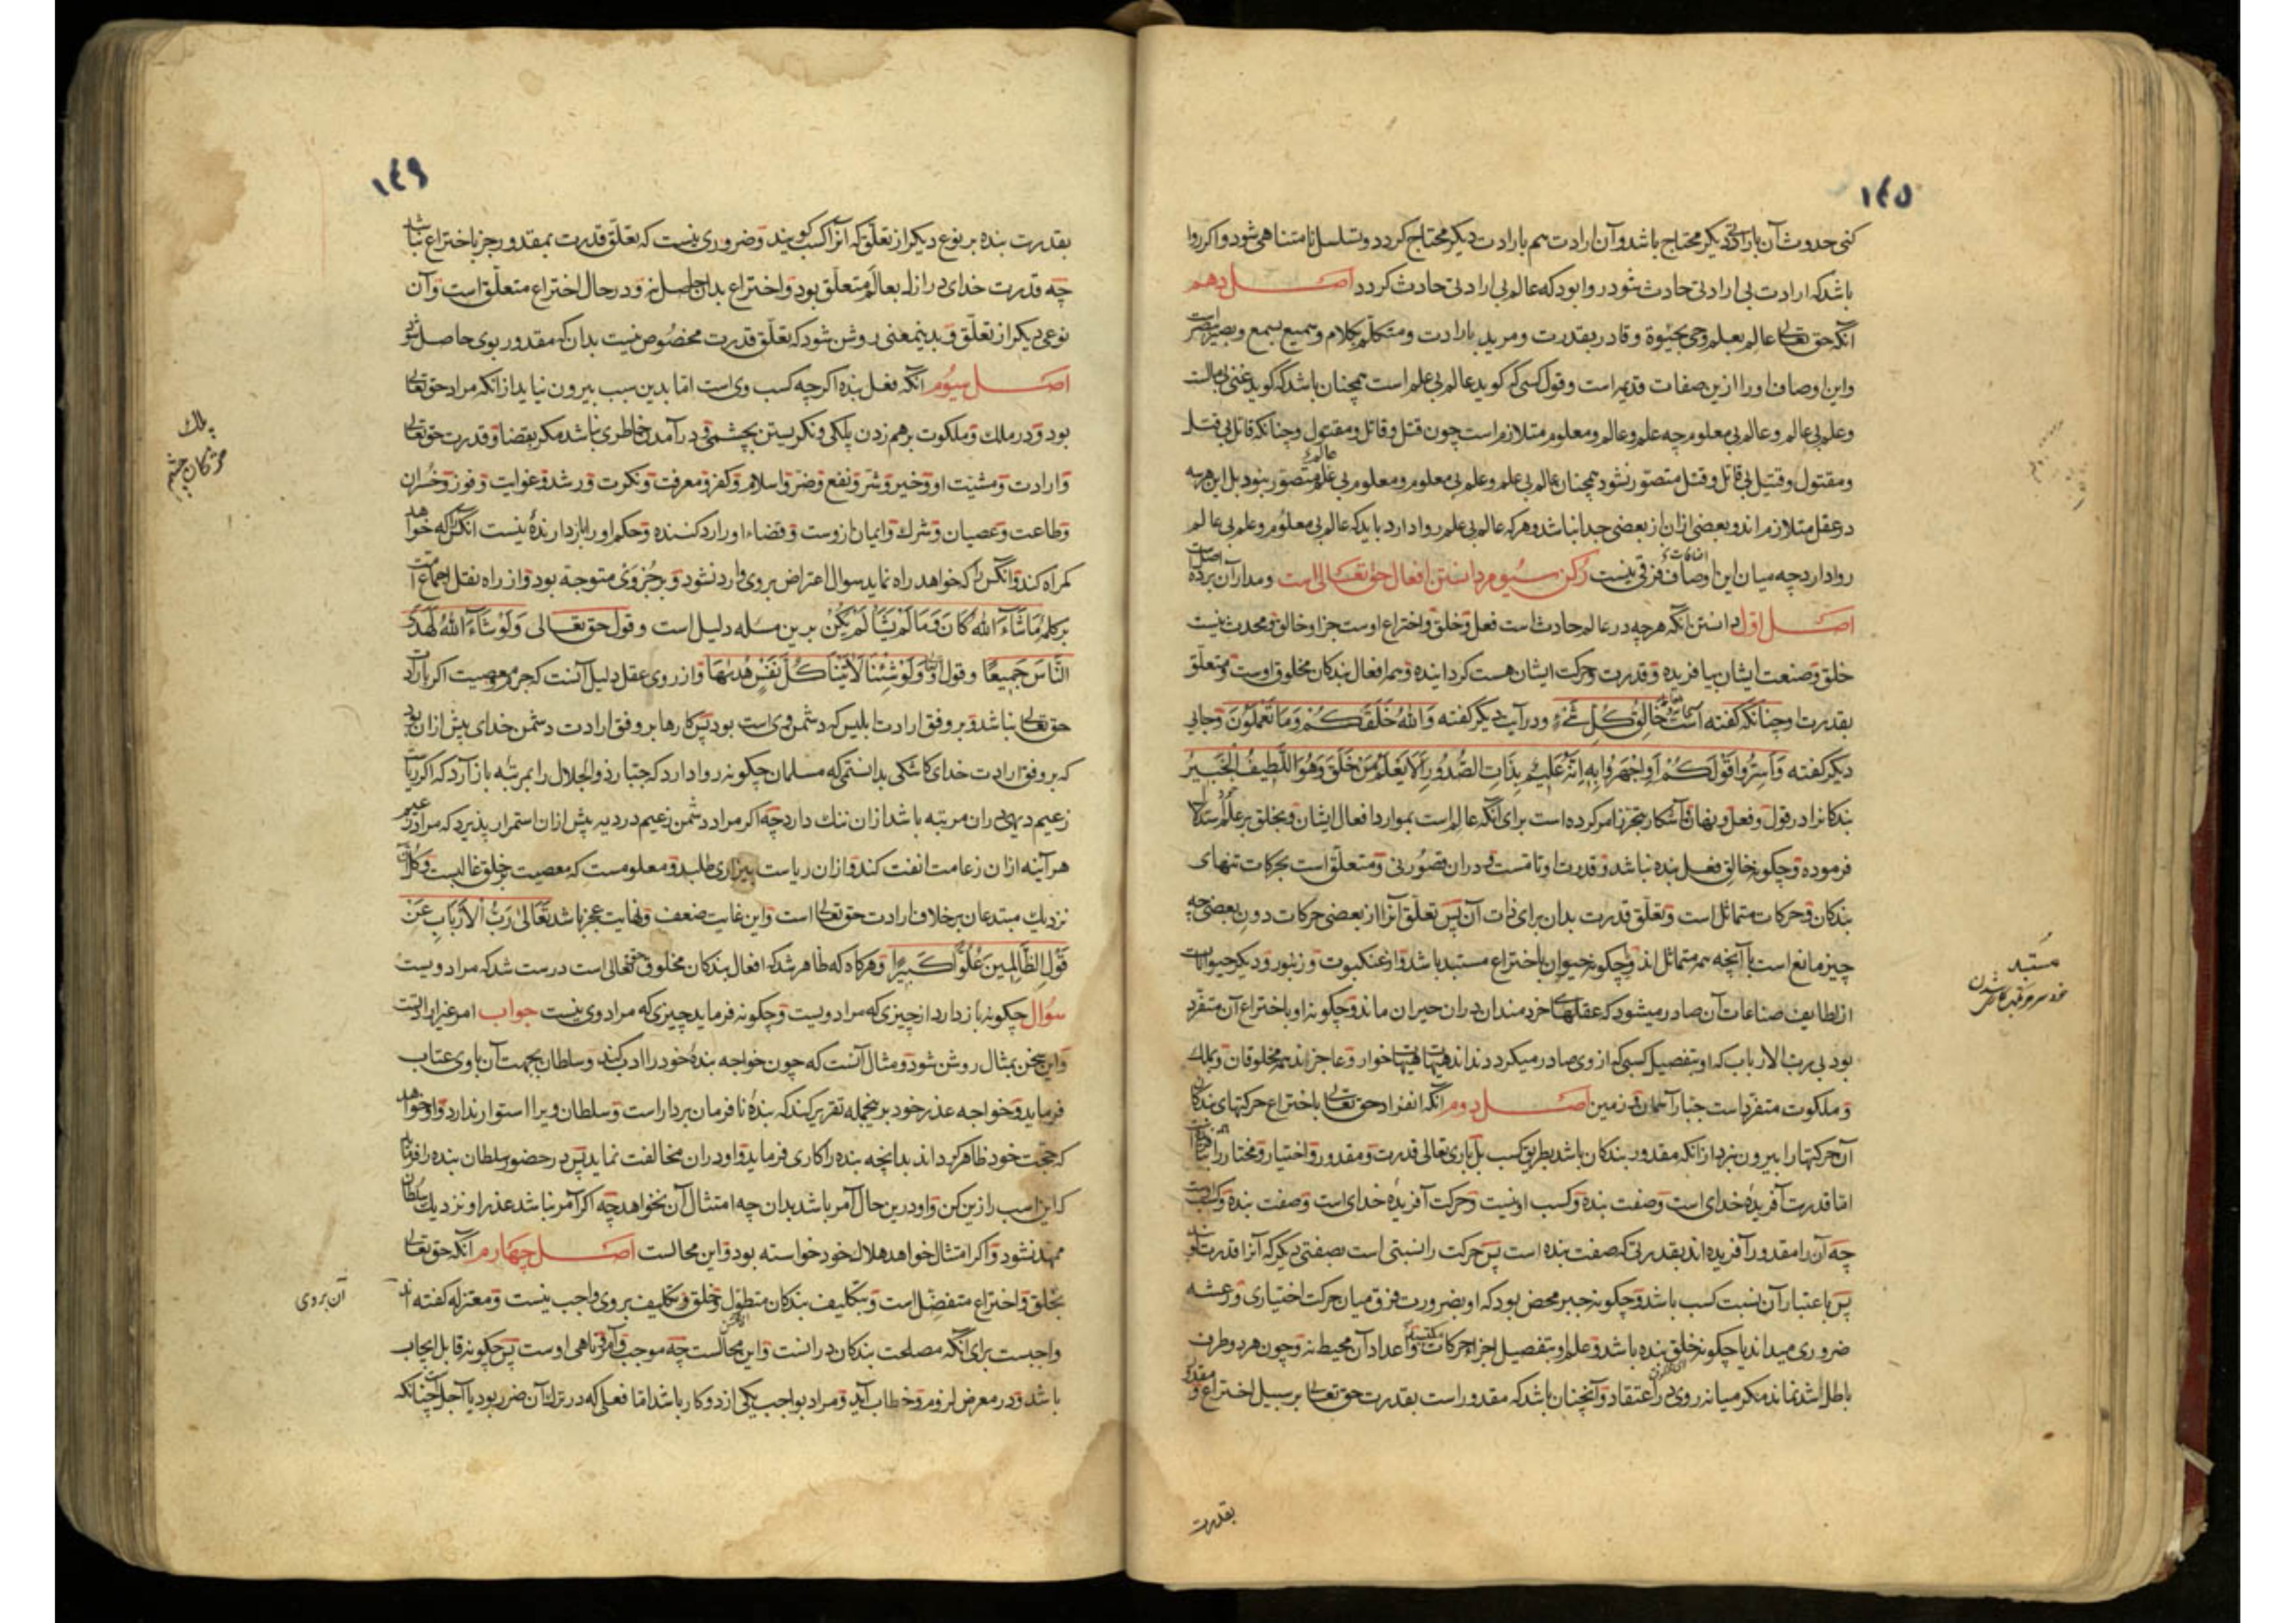 ١٤٥
کنی حدوث آن بارادتی دیکر محتاج باشد و آن ارادت هم بارادت دیکر محتاج کردد و تسلسل نامتناهی شود و اکر روا
باشد که ارادت بی ارادتی حادث شود روا بود که عالم بی ارادتی حادث کردد اصل دهم
آنکه حق تعالی عالم بعلم و حی بحیوة و قادر بقدرت و مرید بارادت و متکلم بکلام و سمیع بسمع و بصیر ببصر است
و این اوصاف او را ازین صفات قدیمه است و قول کسی که کوید عالم بی علم است همچنان باشد که کوید غنی بی مالست
و علم بی عالم و عالم بی معلوم چه علم و عالم و معلوم متلازم است چون قتل و قاتل و مقتول و چنانکه قاتل بی قتل
و مقتول و قتیل بی قاتل و قتل متصور نشود همچنان عالم بی علم و علم بی معلوم و معلوم بی عالم متصور نبود بل این هر سه
در عقل متلازم اند و بعضی ازان از بعضی جدا نباشد و هرکه عالم بی علم روا دارد باید که عالم بی معلوم و علم بی عالم
روا دارد چه میان این اوصاف فرقی نیست رکن سیوم در دانستن افعال حق تعالی است و مدار آن بر ده اصل است
اصل اول دانستن آنکه هرچه در عالم حادث است فعل و خلق و اختراع اوست جز او خالق و محدث نیست
خلق و صنعت ایشان بیافریده و قدرت و حرکت ایشان هست کردانیده و همه افعال بندکان مخلوق اوست و متعلق
بقدرت او چنانکه کفته است خَالِقُ كُلِّ شَیْءٍ و در آیت دیکر کفته وَاللَّهُ خَلَقَكُمْ وَمَا تَعْمَلُونَ و جایی
دیکر کفته وَأَسِرُّوا قَوْلَكُمْ أَوِ اجْهَرُوا بِهِ إِنَّهُ عَلِيمٌ بِذَاتِ الصُّدُورِ أَلَا يَعْلَمُ مَنْ خَلَقَ وَهُوَ اللَّطِيفُ الْخَبِيرُ
بندکانرا در قول و فعل و نهان و آشکار بتحرز امر کرده است برای آنکه عالم است بموارد افعال ایشان و بخلق بر علم استدلال
فرموده و چکونه خالق فعل بنده نباشد و قدرت او تامست و دران قصوری نی و متعلق است بحرکات تنهای
بندکان و حرکات متماثل است و تعلق قدرت بدان برای ذات آن پس تعلق آنرا از بعضی حرکات دون بعضی چه
چیز مانع است با آنچه همه متماثل اند و چکونه حیوان باختراع مستبد باشد و از عنکبوت و زنبور و دیکر حیوانات
از لطایف صناعات آن صادر میشود که عقلهای خردمندان دران حیران ماند و چکونه او باختراع آن متفرد
بود بی رب الارباب که او بتفصیل کسبی که از وی صادر میکردد نداند هیهات هیهات خوار و عاجز اند همه مخلوقان و بملک
و ملکوت متفرد است جبار آسمان و زمین اصل دوم آنکه انفراد حق تعالی باختراع حرکتهای بندکان
آن حرکتها را بیرون نبرد از آنکه مقدور بندکان باشد بطریق کسب بل باری تعالی قدرت و مقدور و اختیار و مختار را
اما قدرت آفریدهٔ خدای است و صفت بنده و کسب او نیست و حرکت آفریدهٔ خدای است و صفت بنده و کسب اوست
چه آن را مقدور آفریده اند بقدرتی که صفت بنده است پس حرکت را نسبتی است بصفتی دیکر که آنرا قدرت کویند
پس باعتبار آن نسبت کسب باشد و چکونه جبر محض بود که او بضرورت فرق میان حرکت اختیاری و رعشه
ضروری میداند یا چکونه خلق بنده باشد و علم او بتفصیل اجزاء حرکات مکتسبه و اعداد آن محیط نه و چون هر دو طرف
باطل شد نماند مکر میانه روی در اعتقاد و آنچنان باشد که مقدور است بقدرت حق تعالی بر سبیل اختراع و مقدور
بقدرت
مستبد
١٤٦
بقدرت بنده بر نوع دیکر از تعلق که آنرا کسب کویند و ضروری نیست که تعلق قدرت بمقدور جز باختراع نباشد
چه قدرت خدای در ازل بعالم متعلق بود و اختراع بدان حاصل نه و در حال اختراع متعلق است و آن
نوعی دیکر از تعلق و بدینمعنی روشن شود که تعلق قدرت مخصوص نیست بدان که مقدور بوی حاصل شود
اصل سیوم آنکه فعل بنده اکرچه کسب وی است اما بدین سبب بیرون نیاید از آنکه مراد حق تعالی
بود و در ملک و ملکوت برهم زدن پلکی و نکریستن بچشمی و در آمدن خاطری نباشد مکر بقضا و قدرت حق تعالی
و ارادت و مشیت او و خیر و شر و نفع و ضر و اسلام و کفر و معرفت و نکرت و رشد و غوایت و فوز و خسران
و طاعت و عصیان و شرک و ایمان ازوست و قضاء او را رد کننده و حکم او را بازدارندهٔ نیست آنکس را که خواهد
کمراه کند و آنکس را که خواهد راه نماید سوال اعتراض بر وی وارد نشود و بر جز وی متوجه بود و از راه نقل اجماع امت
بر کلمهٔ مَا شَاءَ اللَّهُ كَانَ وَمَا لَمْ يَشَأْ لَمْ يَكُنْ برین مسله دلیل است و قول حق تعالی وَلَوْ شَاءَ اللَّهُ لَهَدَى
النَّاسَ جَمِيعًا و قول او وَلَوْ شِئْنَا لَآتَيْنَا كُلَّ نَفْسٍ هُدَيهَا و از روی عقل دلیل آنست که جرم و معصیت اکر بارادت
حق تعالی نباشد و بر وفق ارادت ابلیس که دشمن وی است بود پس کارها بر وفق ارادت دشمن خدای بیش ازان بود
که بر وفق ارادت خدای کاشکی بدانستمی که مسلمان چکونه روا دارد که جبار ذوالجلال را بمرتبهٔ باز آرد که اکر ریاست
زعیم دیهی دران مرتبه باشد ازان ننک دارد چه اکر مراد دشمن زعیم در دیه بیش ازان استمرار پذیرد که مراد زعیم
هر آینه ازان زعامت انفت کند و ازان ریاست بیزاری طلبد و معلومست که معصیت بر خلق غالبست و کل آن
نزدیک مبتدعان بر خلاف ارادت حق تعالی است و این غایت ضعف و نهایت عجز باشد تَعَالَى رَبُّ الْأَرْبَابِ عَنْ
قَوْلِ الظَّالِمِينَ عُلُوًّا كَبِيرًا و هرکاه که ظاهر شد که افعال بندکان مخلوق حق تعالی است درست شد که مراد ویست
سوال چکونه باز دارد از چیزی که مراد ویست و چکونه فرماید چیزی که مراد وی نیست جواب امر غیر ارادتست
و این سخن بمثال روشن شود و مثال آنست که چون خواجه بندهٔ خود را ادب کند و سلطان بجهت آن با وی عتاب
فرماید و خواجه عذر خود برینجمله تقریر کند که بنده نافرمان بردار است و سلطان ویرا استوار ندارد و او خواهد
که حجت خود ظاهر کرداند بدانچه بنده را کاری فرماید و او دران مخالفت نماید پس در حضور سلطان بنده را فرماید
که این اسب را زین کن و او درین حال آمر باشد بدان چه امتثال آن نخواهد چه اکر آمر نباشد عذر او نزدیک سلطان
ممهد نشود و اکر امتثال خواهد هلاک خود خواسته بود و این محالست اصل چهارم آنکه حق تعالی
بخلق و اختراع متفضل است و بتکلیف بندکان متطول و خلق و تکلیف بر وی واجب نیست و معتزله کفته اند
واجبست برای آنکه مصلحت بندکان در انست و این محالست چه موجب و آمر و ناهی اوست پس چکونه قابل ایجاب
باشد و در معرض لزوم و خطاب آید و مراد بواجب یکی از دو کار باشد اما فعلی که در ترک آن ضرر بود یا آجل چنانکه
پلک
مژکان چشم
آن بر وی